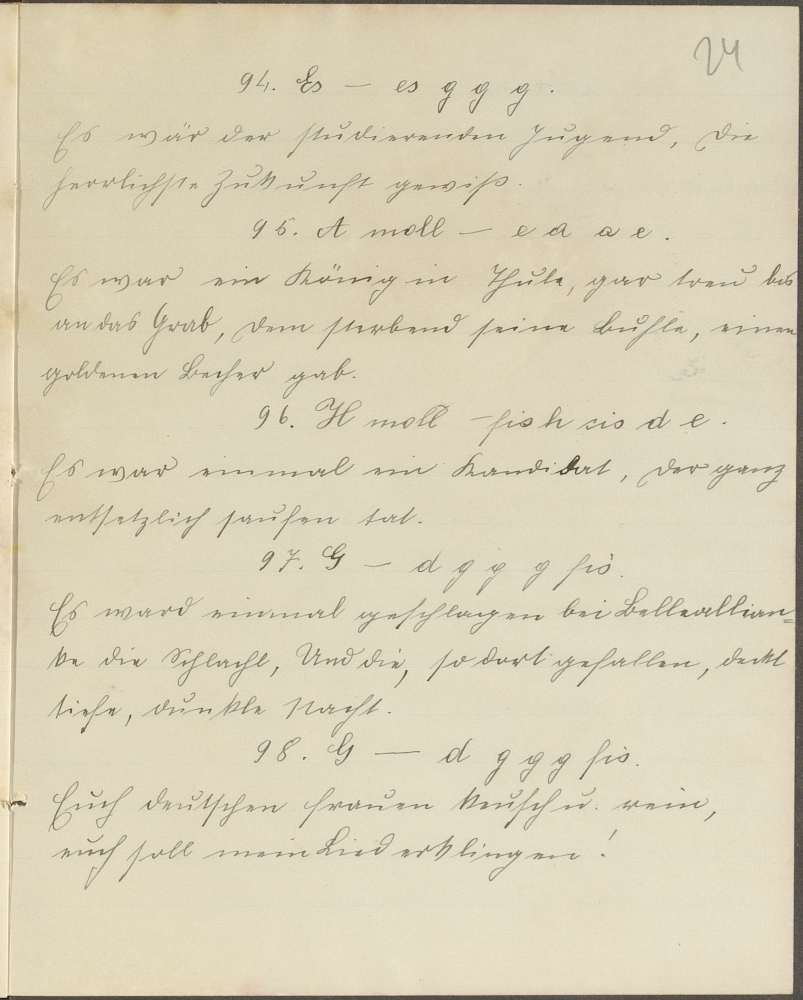 24
94. Es – es g g g.
Es wär der studierenden Jugend, Die
herrlichste Zukunft gewiß.
95. A moll – e a a e.
Es war ein König in Thule, gar treu bis
an das Grab, Dem sterbend seine Buhle, einen
goldenen Becher gab.
96. H moll – fis h cis d e.
Es war einmal ein Kandidat, Der ganz
entsetzlich saufen tat.
97. G – d g g g fis.
Es ward einmal geschlagen bei Belleallian=
ke die Schlacht, Und die, so dort gefallen, deckt
tiefe, dunkle Nacht.
98. G – d g g g fis.
Euch deutschen Frauen keusch u. rein,
euch soll mein Lied erklingen!